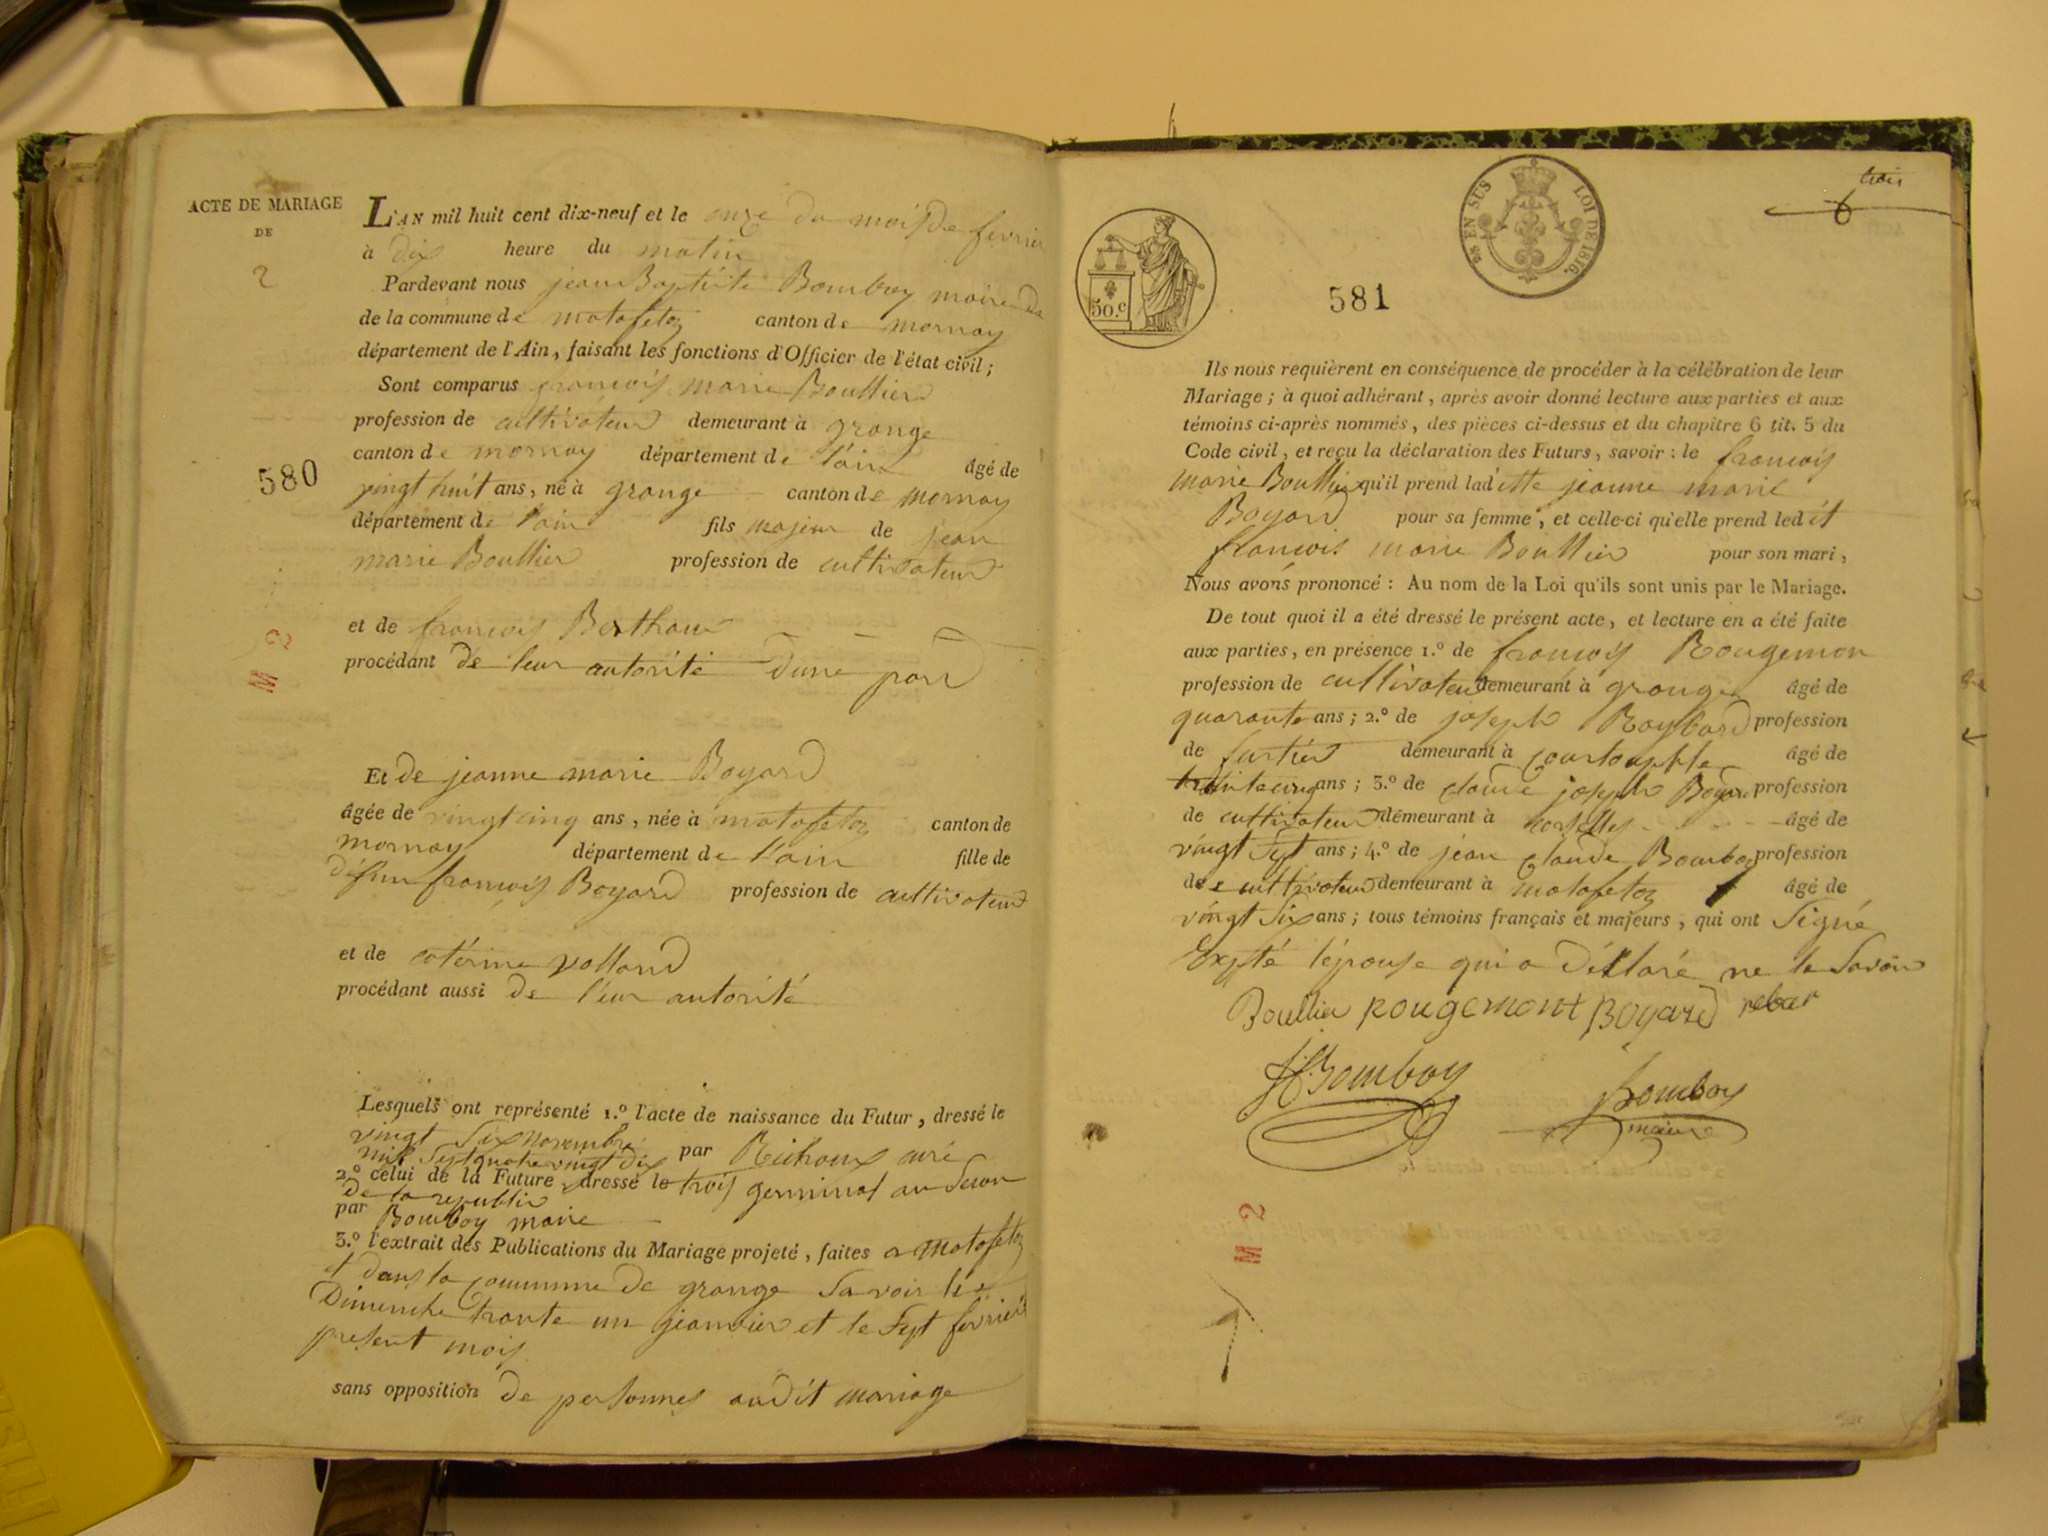 ACTE DE MARIAGE
DE
2
580
M 2
L'AN mil huit cent dix-neuf et le onze du mois de fevrier
à dix heure du matin
Pardevant nous jean Baptiste Bomboy maire de
de la commune de matafelon canton de mornay
département de l'Ain, faisant les fonctions d'Officier de l'état civil;
Sont comparus francois marie Boullier
profession de cultivateur demeurant à grange
canton de mornay département de l'ain âgé de
vingt huit ans, né à grange canton de mornay
département de l'ain fils majeur de jean
marie Boullier profession de cultivateur
et de francois Berthour
procédant de leur autorité dune part
Et de jeanne marie Boyard
âgée de vingt cinq ans, née à matafelon canton de
mornay département de l'ain fille de
défun francois Boyard profession de cultivateur
et de catérine volland
procédant aussi de l'eur autorité
Lesquels ont représenté 1.º l'acte de naissance du Futur, dressé le
vingt six novembre
mil sept quatre vingt dix par Richoux curé
2.º celui de la Future dressé le trois germinal an secon
de la republic
par Bomboy maire
3.º l'extrait des Publications du Mariage projeté, faites a Matafelon
et dans la commune de grange savoir le
Dimenche trante un jeanvier et le sept février
present mois
sans opposition de personnes audit mariage
trois
6
50.c
EN SUS LOI DE 1816.
581
Ils nous requièrent en conséquence de procéder à la célébration de leur
Mariage; à quoi adhérant, après avoir donné lecture aux parties et aux
témoins ci-après nommés, des pièces ci-dessus et du chapitre 6 tit. 5 du
Code civil, et reçu la déclaration des Futurs, savoir: le francois
marie Boullier qu'il prend ladette jeanne marie
Boyard pour sa femme, et celle-ci qu'elle prend ledit
francois marie Boullier pour son mari,
Nous avons prononcé: Au nom de la Loi qu'ils sont unis par le Mariage.
De tout quoi il a été dressé le présent acte, et lecture en a été faite
aux parties, en présence 1.º de francois Rougemon
profession de cultivateur demeurant à grange âgé de
quarante ans; 2.º de joseph Raybard profession
de demeurant à courtouphle âgé de
ans; 3.º de claude joseph Boyard profession
de cultivateur démeurant à âgé de
vingt sept ans; 4.º de jean claude Bomboy profession
de cultivateur demeurant à matafelon âgé de
vingt six ans; tous témoins français et majeurs, qui ont signé
Exepté l'épouse qui a déclaré ne le savoir
Boullier ROUGEMONT BOYARD rebar
Bomboy
Bomboy
maire
M 2